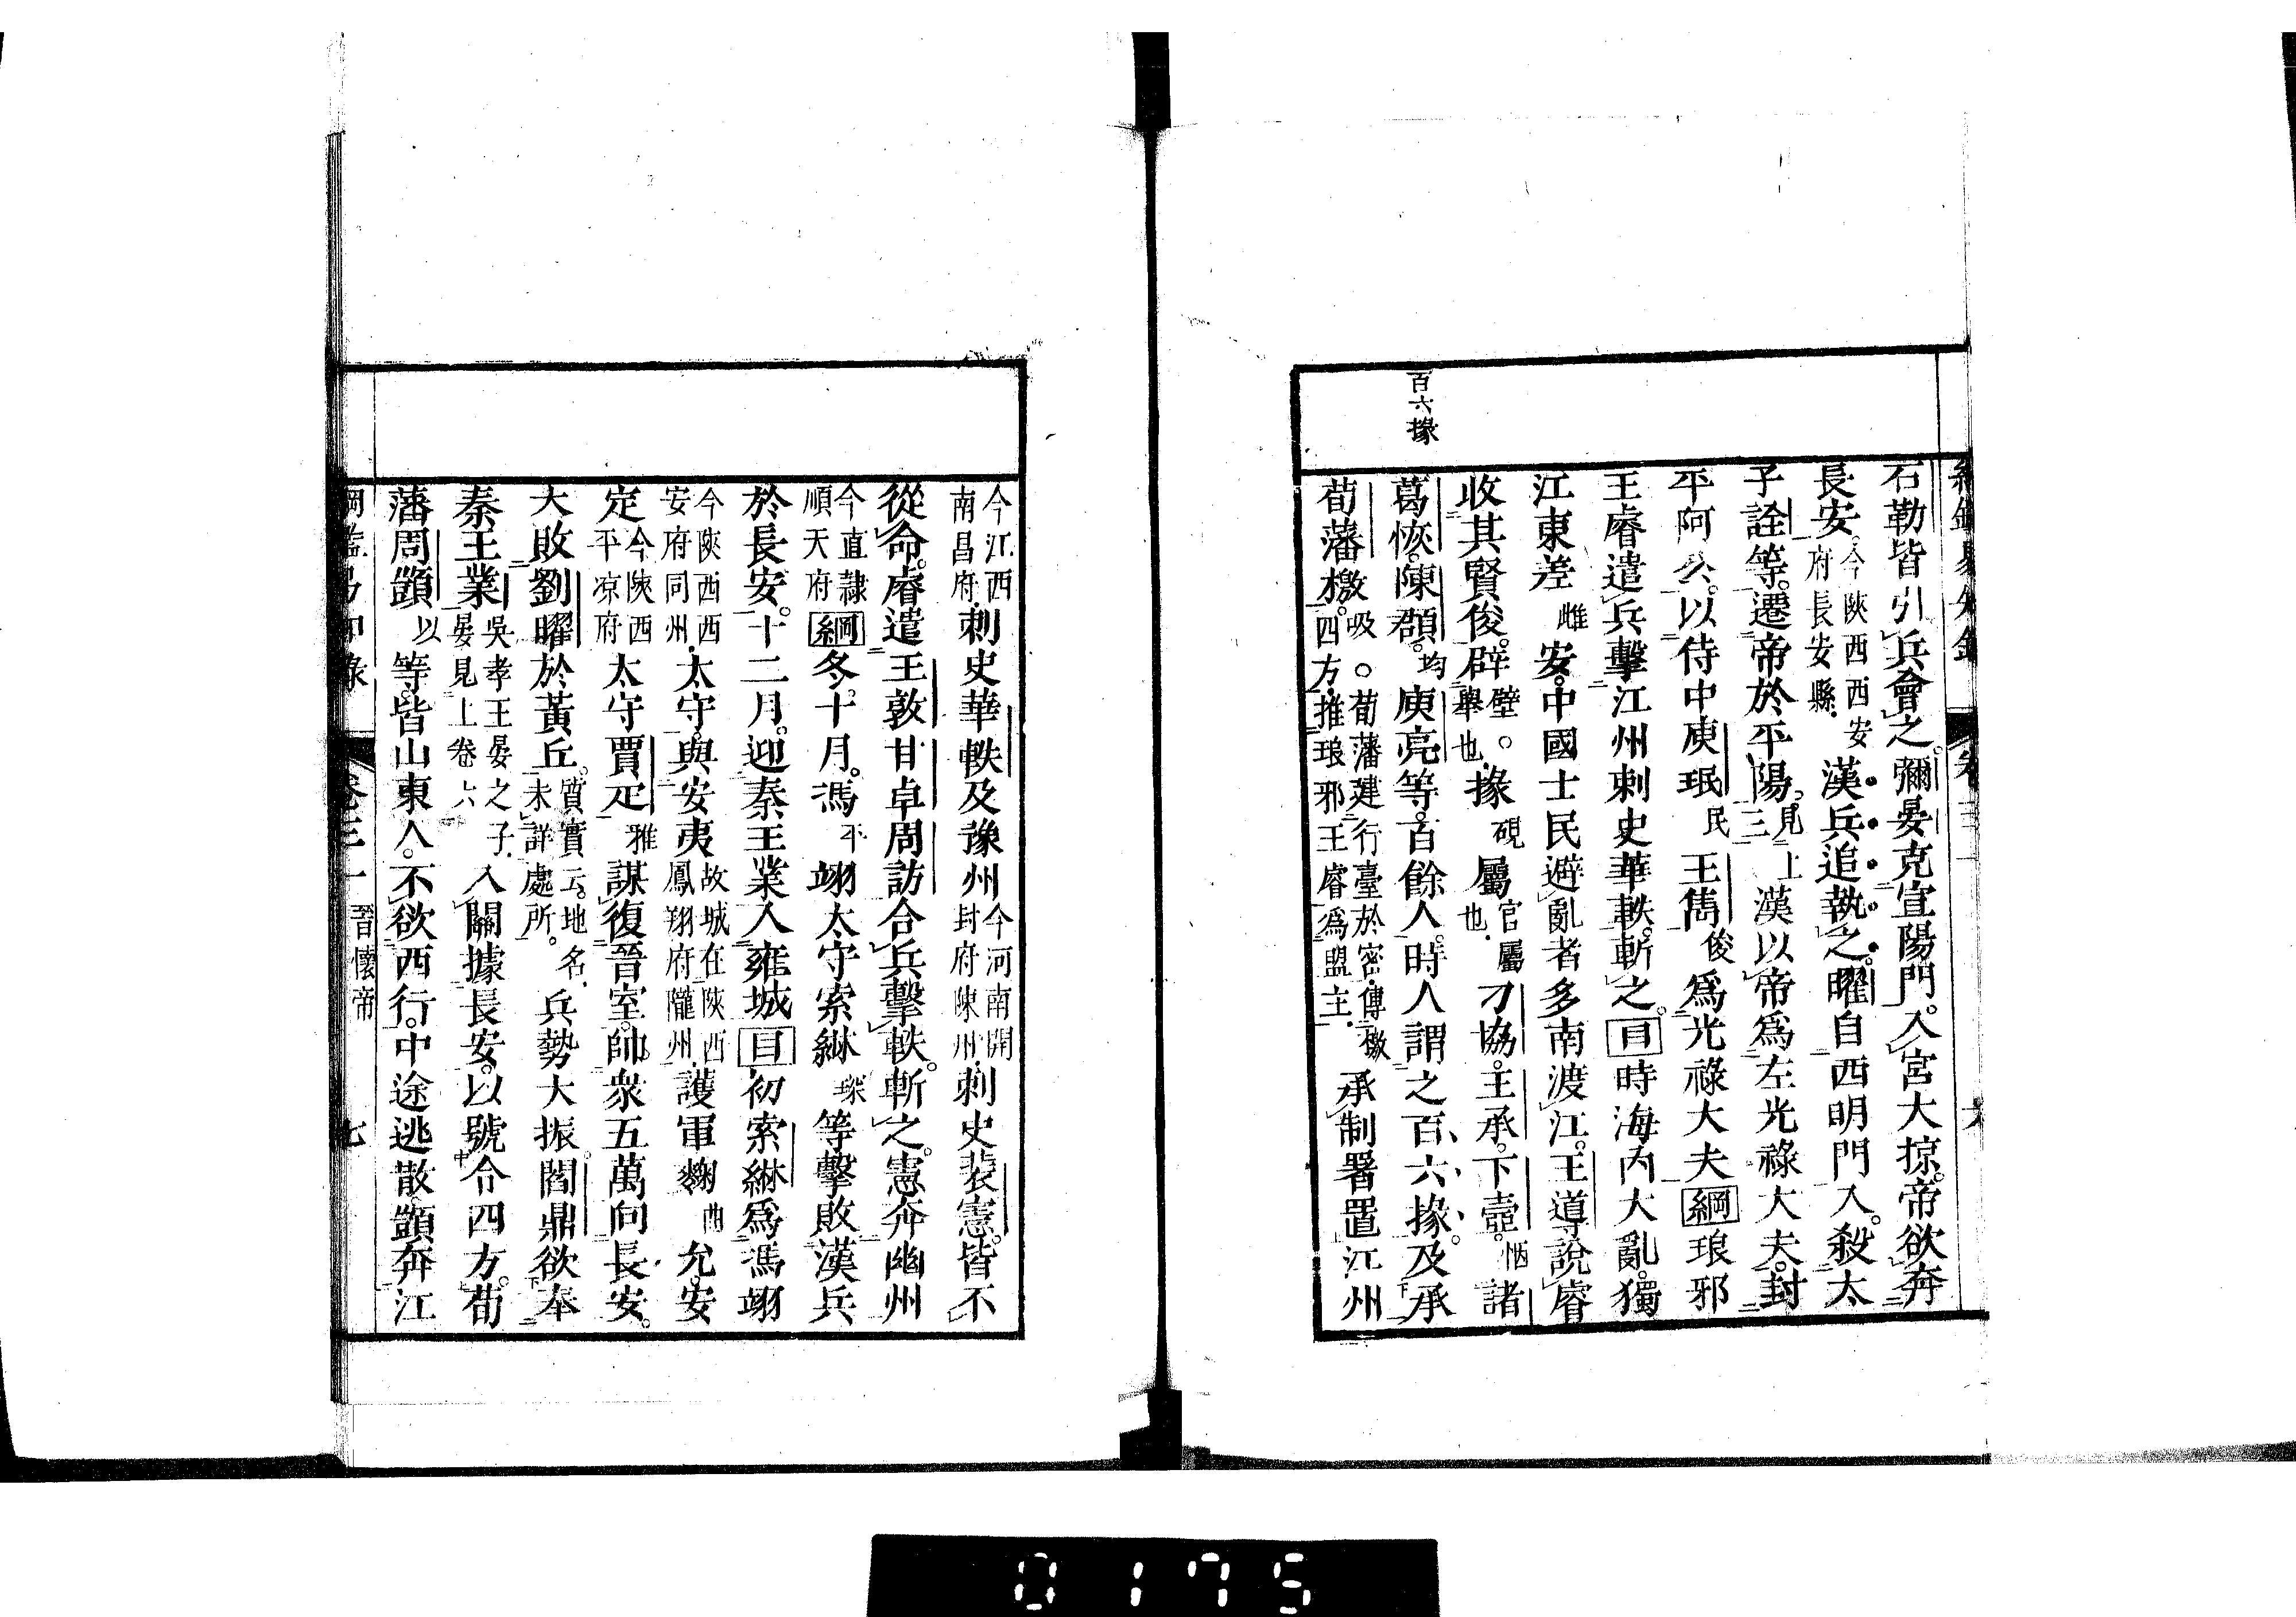 百六掾
石勒皆引兵會之。彌晏克宣陽門。入宮大掠。帝欲奔
長安。今陝西西安府長安縣。漢兵追執之。曜自西明門入。殺太
子詮等。遷帝於平陽。見上三漢以帝爲左光祿大夫。封
平阿公。以侍中庾珉民王雋俊爲光祿大夫綱琅邪
王睿遣兵擊江州刺史華軼。斬之。目時海內大亂。獨
江東差雌安。中國士民避亂者多南渡江。王導說睿
收其賢俊。辟壁。舉也。掾硯屬官屬也。刁協。王承。卞壼。悃諸
葛恢。陳頵。均庾亮等。百餘人。時人謂之百六掾。及承
荀藩檄。吸。荀藩建行臺於密。傳檄四方。推琅邪王睿爲盟主。承制署置江州
今江西南昌府。刺史華軼及豫州今河南開封府陳州。刺史裴憲。皆不
從命。睿遣王敦甘卓周訪合兵擊軼。斬之。憲奔幽州
今直隸順天府綱冬。十月。馮平翊太守索綝琛等擊敗漢兵
於長安。十二月。迎秦王業入雍城目初索綝爲馮翊
今陝西西安府同州。太守。與安夷故城在陝西鳳翔府隴州。護軍麴曲允。安
定今陝西平凉府太守賈疋雅謀復晉室。帥衆五萬向長安。
大敗劉曜於黃丘。質實云。地名。未詳處所。兵勢大振。閻鼎欲奉
秦王業吳孝王晏之子。晏見上卷六入關據長安。以號令四方。荀
藩周顗以等。皆山東人。不欲西行。中途逃散。顗奔江
綱鑑易知錄 卷三一 晉懷帝 七